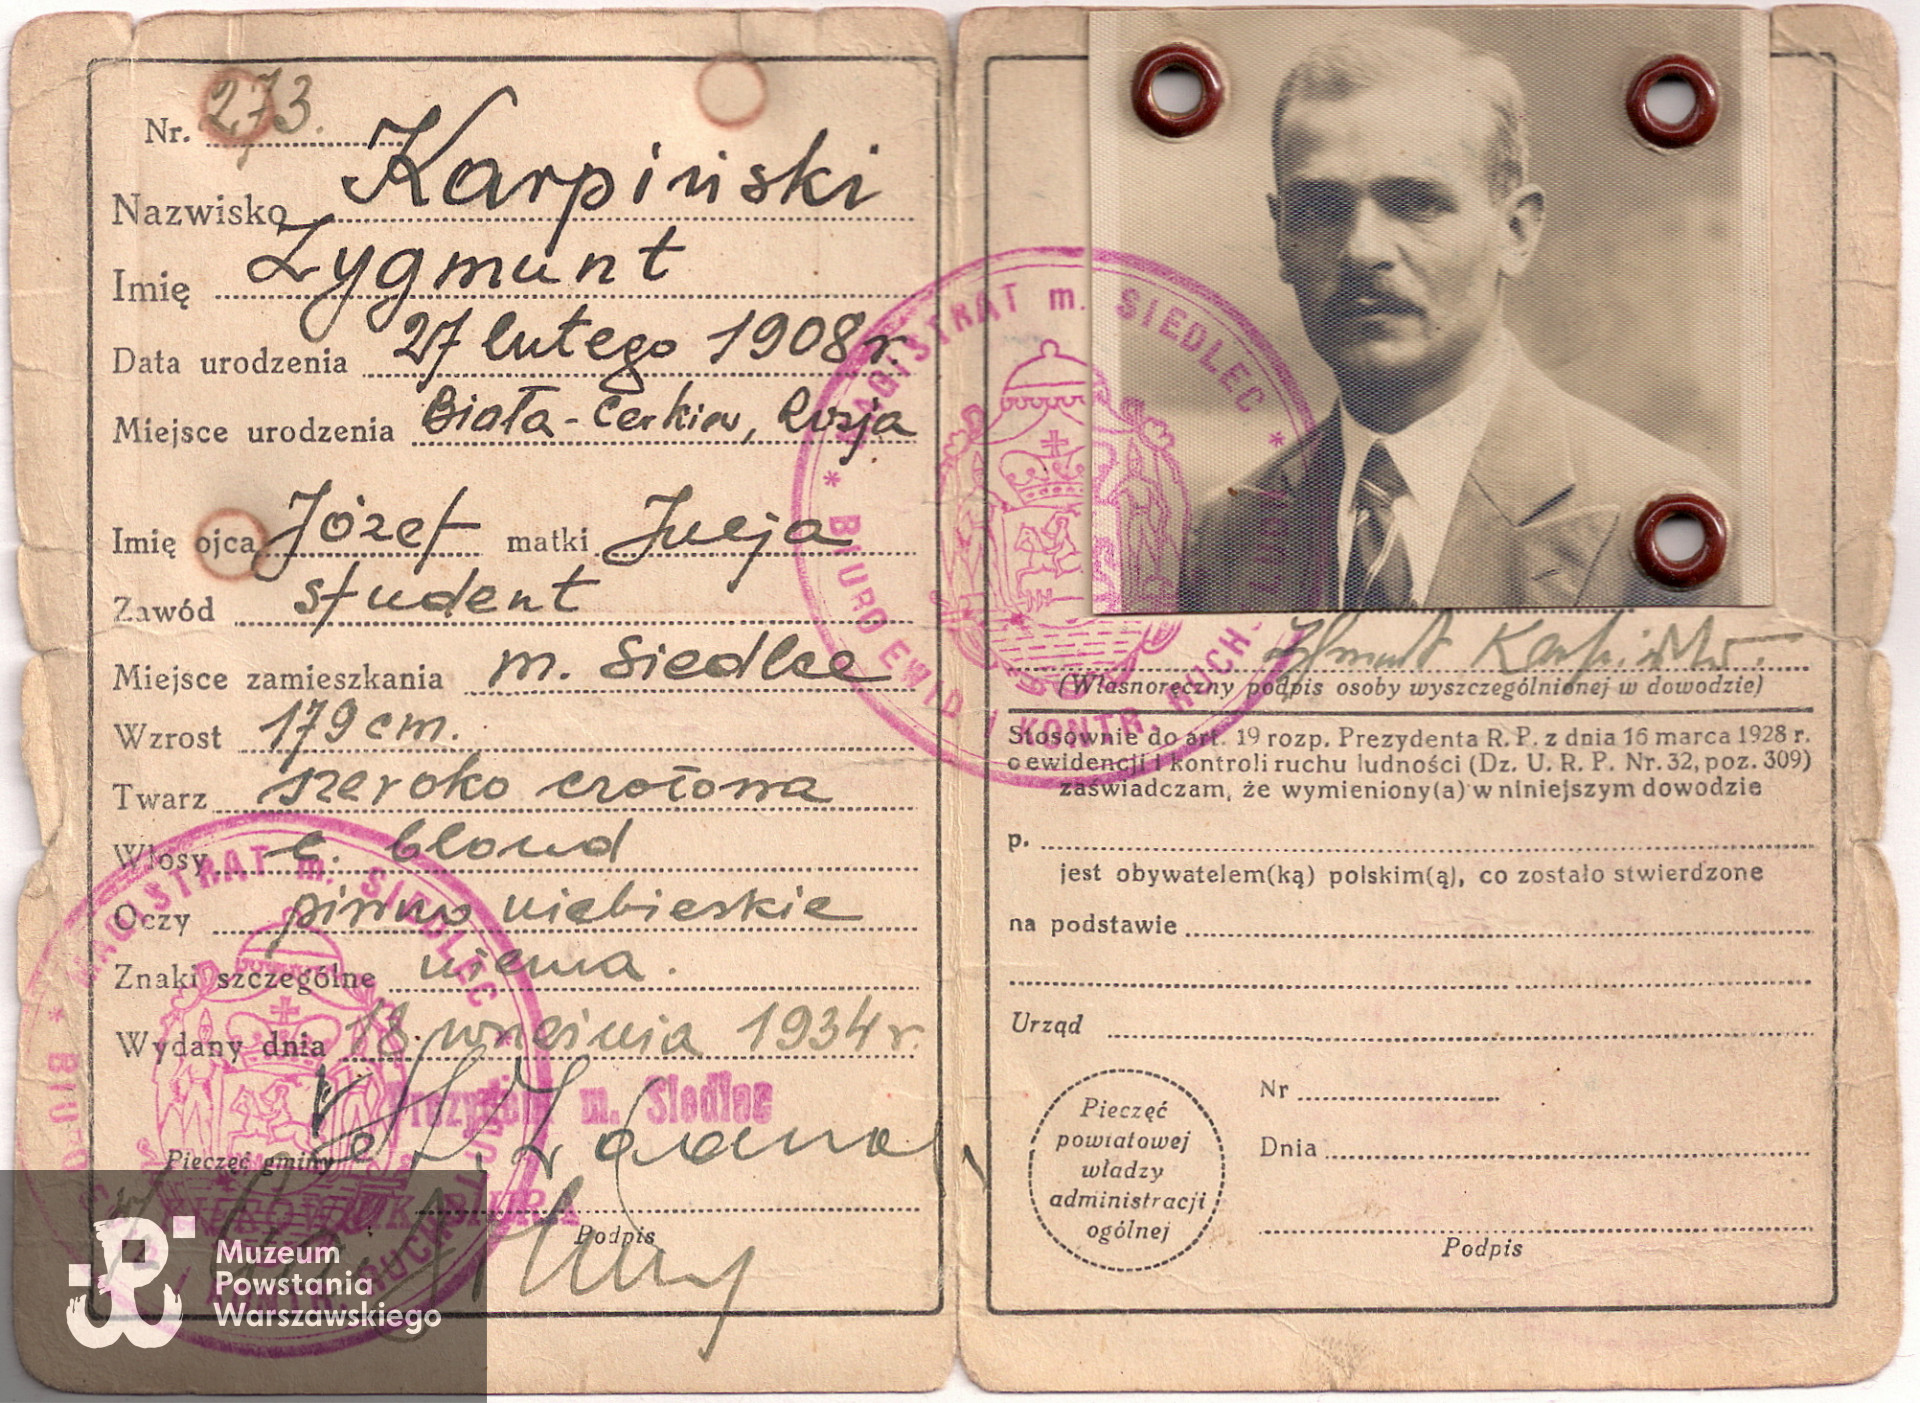 Nr. 273.
Nazwisko Karpiński
Imię Zygmunt
Data urodzenia 27 lutego 1908 r.
Miejsce urodzenia Biała-Cerkiew, Rosja
Imię ojca Józef matki Julja
Zawód student
Miejsce zamieszkania m. Siedlce
Wzrost 179 cm.
Twarz szeroko czołowa
Włosy c. blond
Oczy piwno niebieskie
Znaki szczególne niema.
Wydany dnia 18. września 1934 r.
Prezydent m. Siedlec
Pieczęć gminy
KIEROWNIK BIURA
Podpis
MAGISTRAT m. SIEDLEC
* BIURO EWID. I KONTR. RUCHU LUDN. *
MAGISTRAT m. SIEDLEC
Zygmunt Karpiński
(Własnoręczny podpis osoby wyszczególnionej w dowodzie)
Stosownie do art. 19 rozp. Prezydenta R. P. z dnia 16 marca 1928 r.
o ewidencji i kontroli ruchu ludności (Dz. U. R. P. Nr. 32, poz. 309)
zaświadczam, że wymieniony(a) w niniejszym dowodzie
p.
jest obywatelem(ką) polskim(ą), co zostało stwierdzone
na podstawie
Urząd
Nr
Dnia
Pieczęć
powiatowej
władzy
administracji
ogólnej
Podpis
Muzeum
Powstania
Warszawskiego